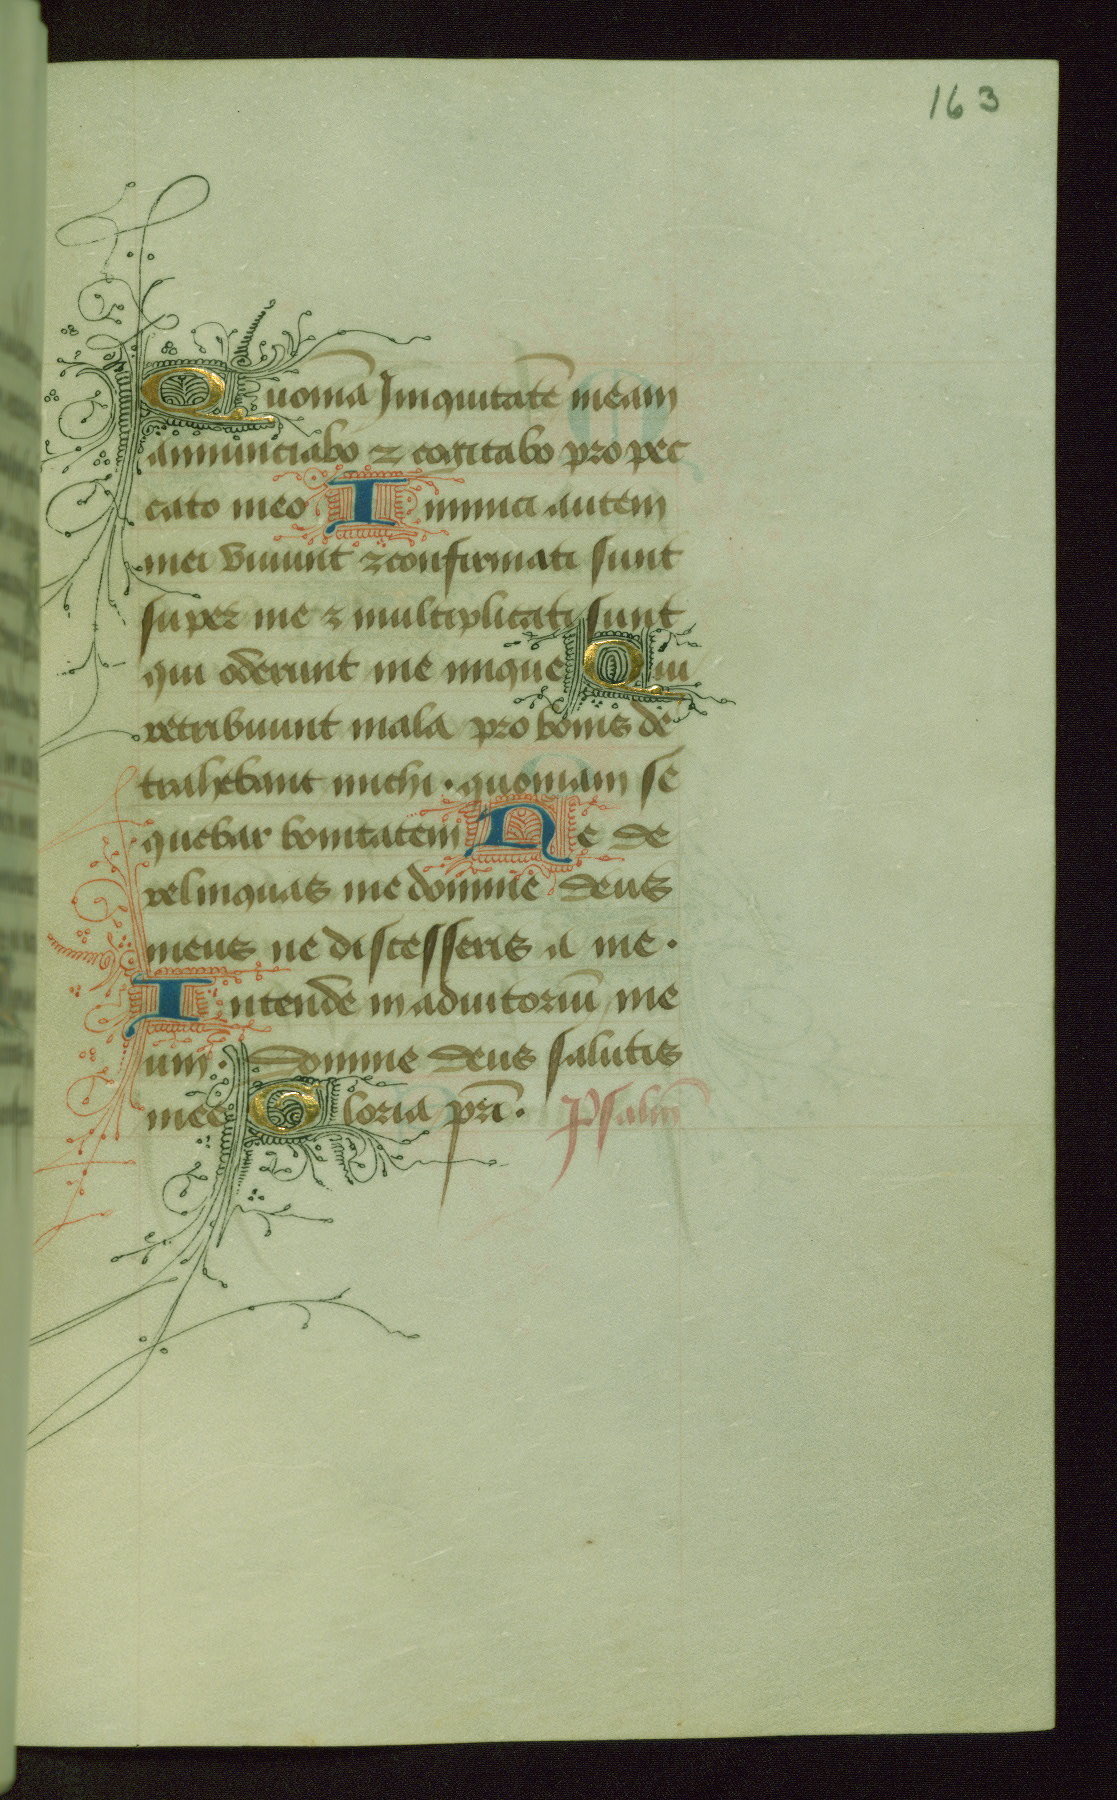 163
Quoniā Iniquitatē meam
annunciabo ⁊ cogitabo pro pec
cato meo Inimici autem
mei viuunt ⁊ confirmati sunt
super me ⁊ multiplicati sunt
qui oderunt me inique Qui
retribuunt mala pro bonis de
trahebant michi · quoniam se
quebar bonitatem Ne de
relinquas me domine deus
meus ne discesseris a me ·
Intende in adiutoriū me
um · Domine deus salutis
mee Gloria pr̄i · Psalm̄